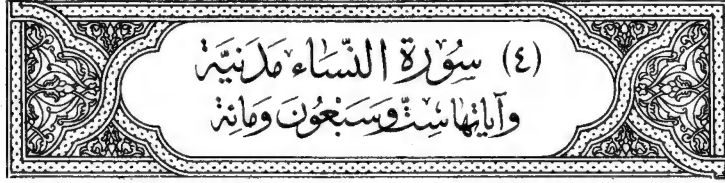 (٤) سُوْرَة النِّسَاء مَدَنِيَّة
وَآيَاتُهَا سِتٌّ وَسَبْعُونَ وَمِائَة